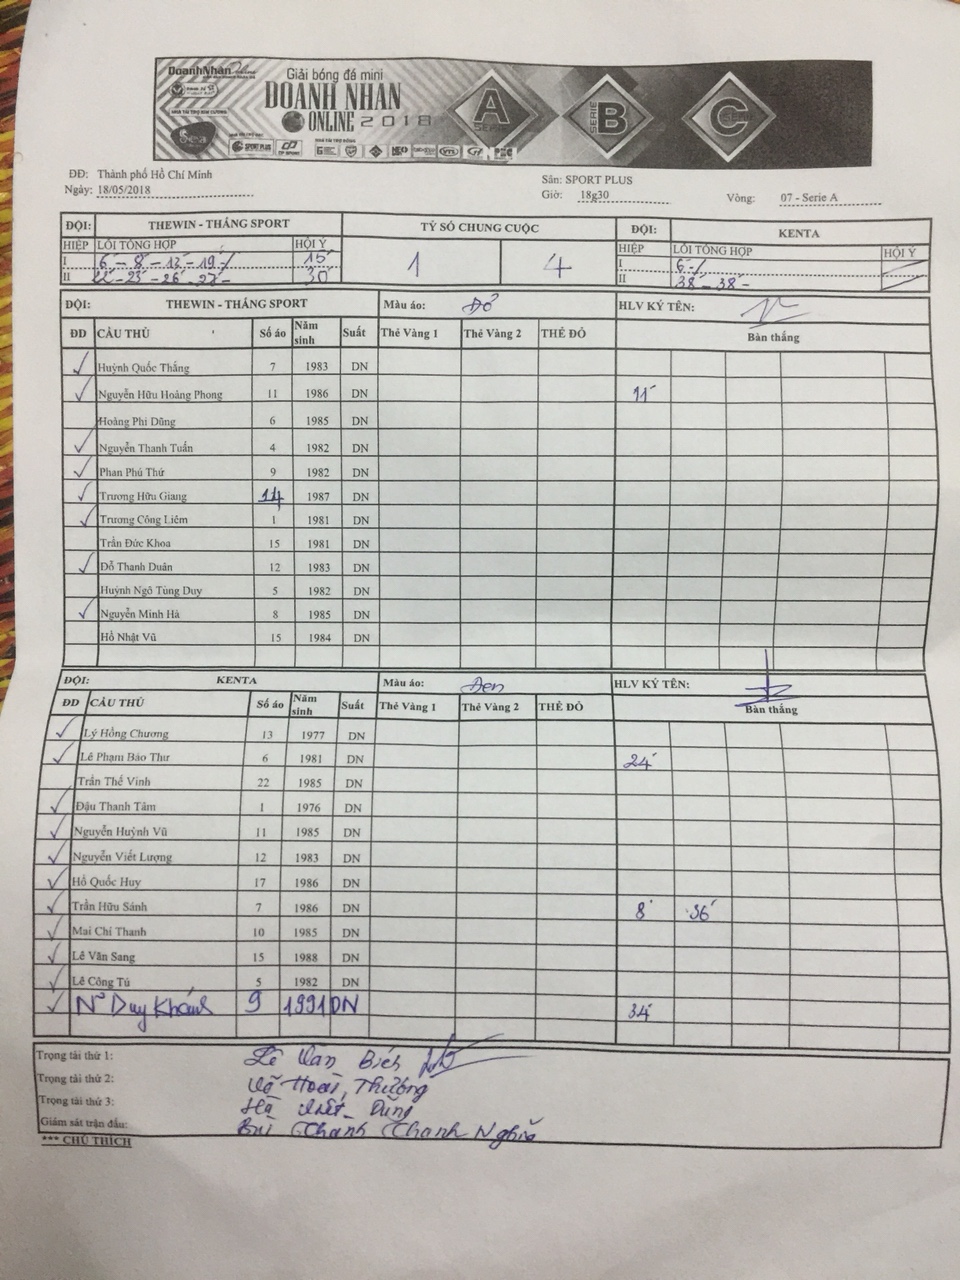 DoanhNhân
Giải bóng đá mini
DOANH NHAN
ONLINE 2018
Sea
SPORT PLUS
A SERIE
SERIE B
C SERIE
ĐĐ: Thành phố Hồ Chí Minh
Sân: SPORT PLUS
Ngày: 18/05/2018 Giờ: 18g30 Vòng: 07 - Serie A
ĐỘI: THEWIN - THẮNG SPORT TỶ SỐ CHUNG CUỘC ĐỘI: KENTA
HIỆP LỖI TỔNG HỢP HỘI Ý 1 4 HIỆP LỖI TỔNG HỢP HỘI Ý
I 6 - 8 - 12 - 19 / 15' I 6 /
II 22 - 23 - 26 - 27 - 30' II 38 - 38 -
ĐỘI: THEWIN - THẮNG SPORT Màu áo: Đỏ HLV KÝ TÊN:
ĐD CẦU THỦ Số áo Năm sinh Suất Thẻ Vàng 1 Thẻ Vàng 2 THẺ ĐỎ Bàn thắng
✓ Huỳnh Quốc Thắng 7 1983 DN
✓ Nguyễn Hữu Hoàng Phong 11 1986 DN 11'
Hoàng Phi Dũng 6 1985 DN
✓ Nguyễn Thanh Tuấn 4 1982 DN
✓ Phan Phú Thứ 9 1982 DN
✓ Trương Hữu Giang 14 1987 DN
✓ Trương Công Liêm 1 1981 DN
Trần Đức Khoa 15 1981 DN
✓ Đỗ Thanh Duân 12 1983 DN
Huỳnh Ngô Tùng Duy 5 1982 DN
✓ Nguyễn Minh Hà 8 1985 DN
Hồ Nhật Vũ 15 1984 DN
ĐỘI: KENTA Màu áo: Đen HLV KÝ TÊN:
ĐD CẦU THỦ Số áo Năm sinh Suất Thẻ Vàng 1 Thẻ Vàng 2 THẺ ĐỎ Bàn thắng
✓ Lý Hồng Chương 13 1977 DN
✓ Lê Phạm Bảo Thư 6 1981 DN 24'
Trần Thế Vinh 22 1985 DN
✓ Đậu Thanh Tâm 1 1976 DN
✓ Nguyễn Huỳnh Vũ 11 1985 DN
✓ Nguyễn Viết Lượng 12 1983 DN
✓ Hồ Quốc Huy 17 1986 DN
✓ Trần Hữu Sánh 7 1986 DN 8' 36'
✓ Mai Chí Thanh 10 1985 DN
✓ Lê Văn Sang 15 1988 DN
✓ Lê Công Tú 5 1982 DN
✓ Nº Duy Khánh 9 1991 DN 34'
Trọng tài thứ 1: Lê Văn Biếh
Trọng tài thứ 2: Võ Hoài Thường
Trọng tài thứ 3: Hà Việt Dũng
Giám sát trận đấu: Bùi Thanh Thanh Nghĩa
*** CHÚ THÍCH